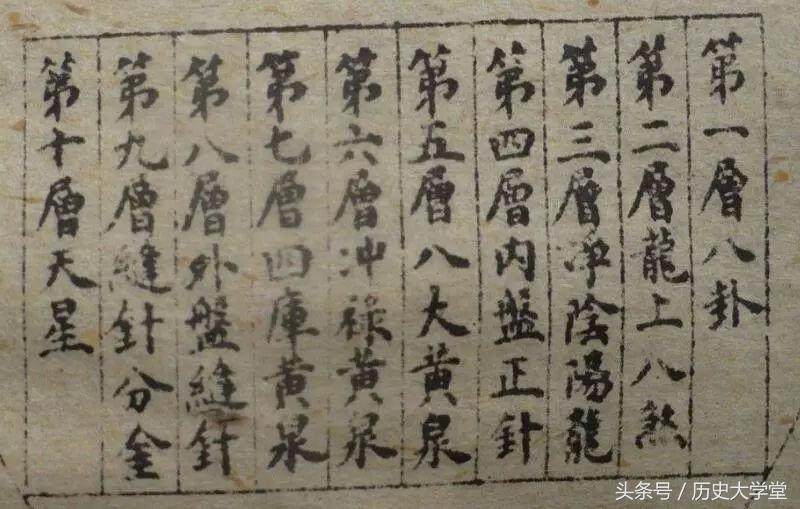 第一層八卦
第二層龍上八煞
第三層淨陰陽龍
第四層內盤正針
第五層八大黄泉
第六層冲祿黄泉
第七層四庫黄泉
第八層外盤縫針
第九層縫針分金
第十層天星
头条号 / 历史大学堂